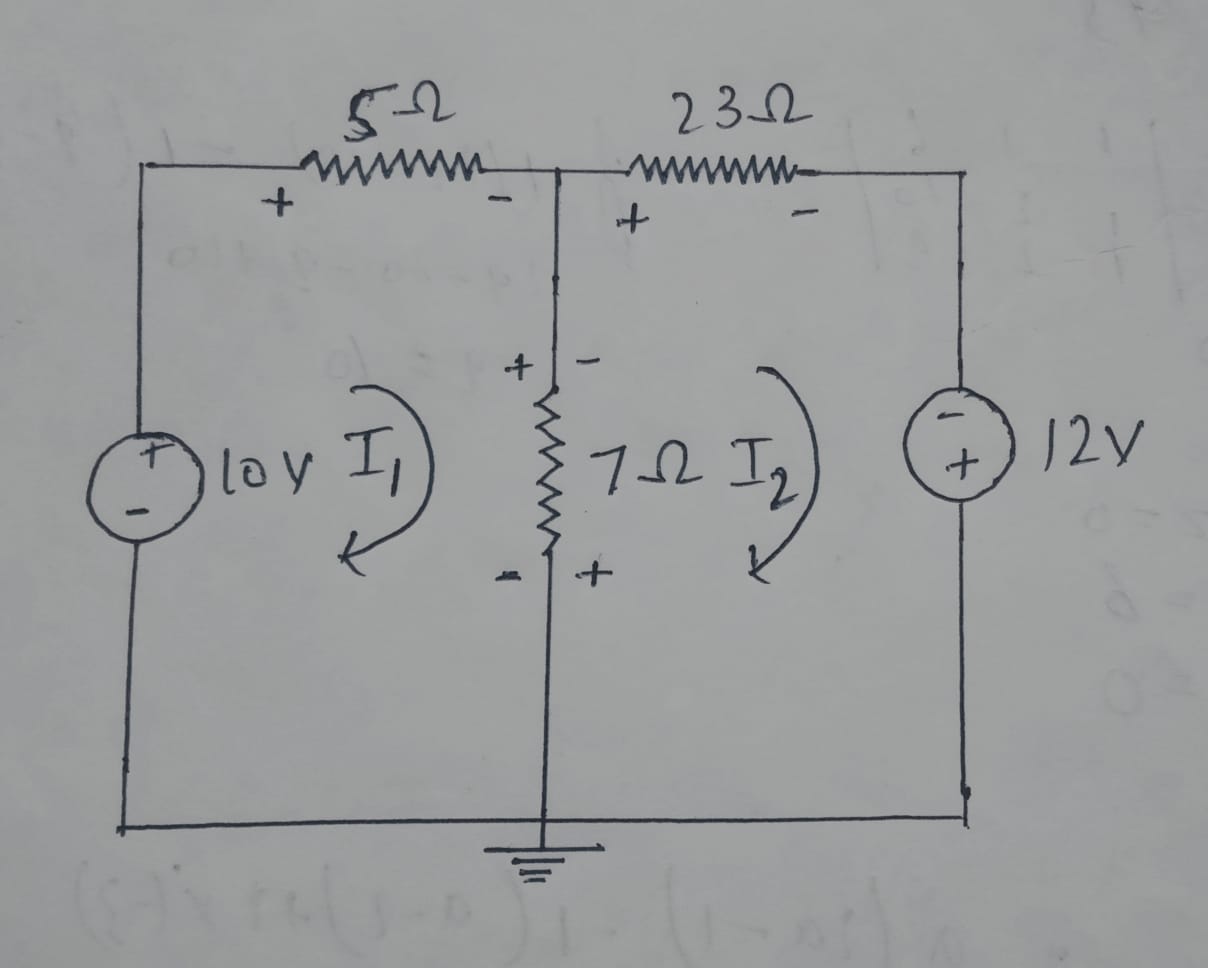 5Ω 23Ω
+ - + -
+ -
+ 10V I₁ 7Ω I₂ - 12V
- +
- +